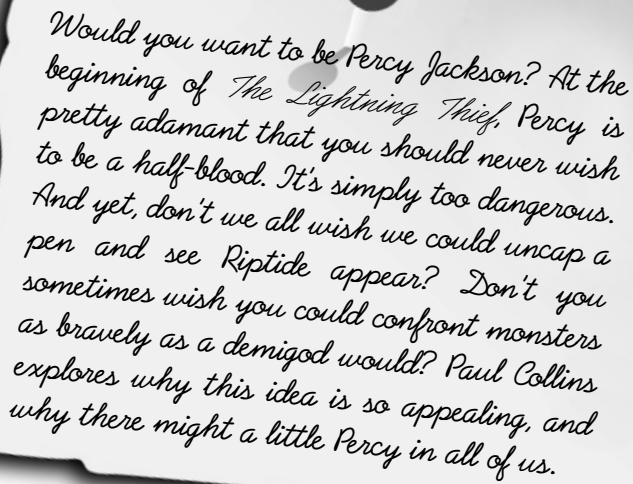 Would you want to be Percy Jackson? At the
beginning of The Lightning Thief, Percy is
pretty adamant that you should never wish
to be a half-blood. It's simply too dangerous.
And yet, don't we all wish we could uncap a
pen and see Riptide appear? Don't you
sometimes wish you could confront monsters
as bravely as a demigod would? Paul Collins
explores why this idea is so appealing, and
why there might a little Percy in all of us.